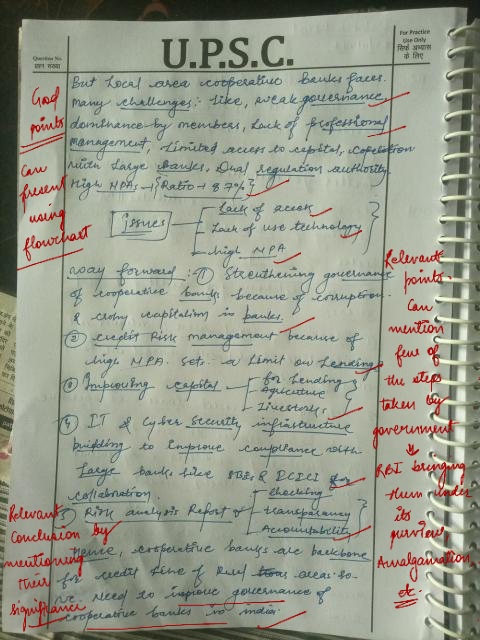 Question No.
प्रश्न संख्या
U.P.S.C.
For Practice
Use Only
सिर्फ अभ्यास
के लिए
But Local area cooperative banks faces
many challenges: like, weak governance,
dominance by members, Lack of professional
management, Limited access to capital,
with Large banks, Dual regulation authority.
High NPAs → {Ratio → 8.7%}
Issues
Lack of access
Lack of use technology
high NPA
Good
points
Can
present
using
flowchart
way forward: ① Strenthening governance
of cooperative banks because of corruption
& crony capitalism in banks.
② credit Risk management because of
high NPA. Set a Limit on Lending
③ Improving capital
for Lending
Agriculture
Livestocks
④ IT & Cyber security infrastructure
building to improve compliance with
Large banks like SBI & ICICI for
collaboration.
⑤ Risk analysis Report
checking
transparancy
Accountability
Hence, cooperative banks are backbone
for credit Line of Rural areas. so
we need to improve governance of
cooperative banks in india.
Relevant
points.
Can
mention
few of
the steps
taken by
government
↓
RBI bringing
them under
its
purview
Amalgamation
etc.
Relevant
Conclusion by
mentioning
their
significance